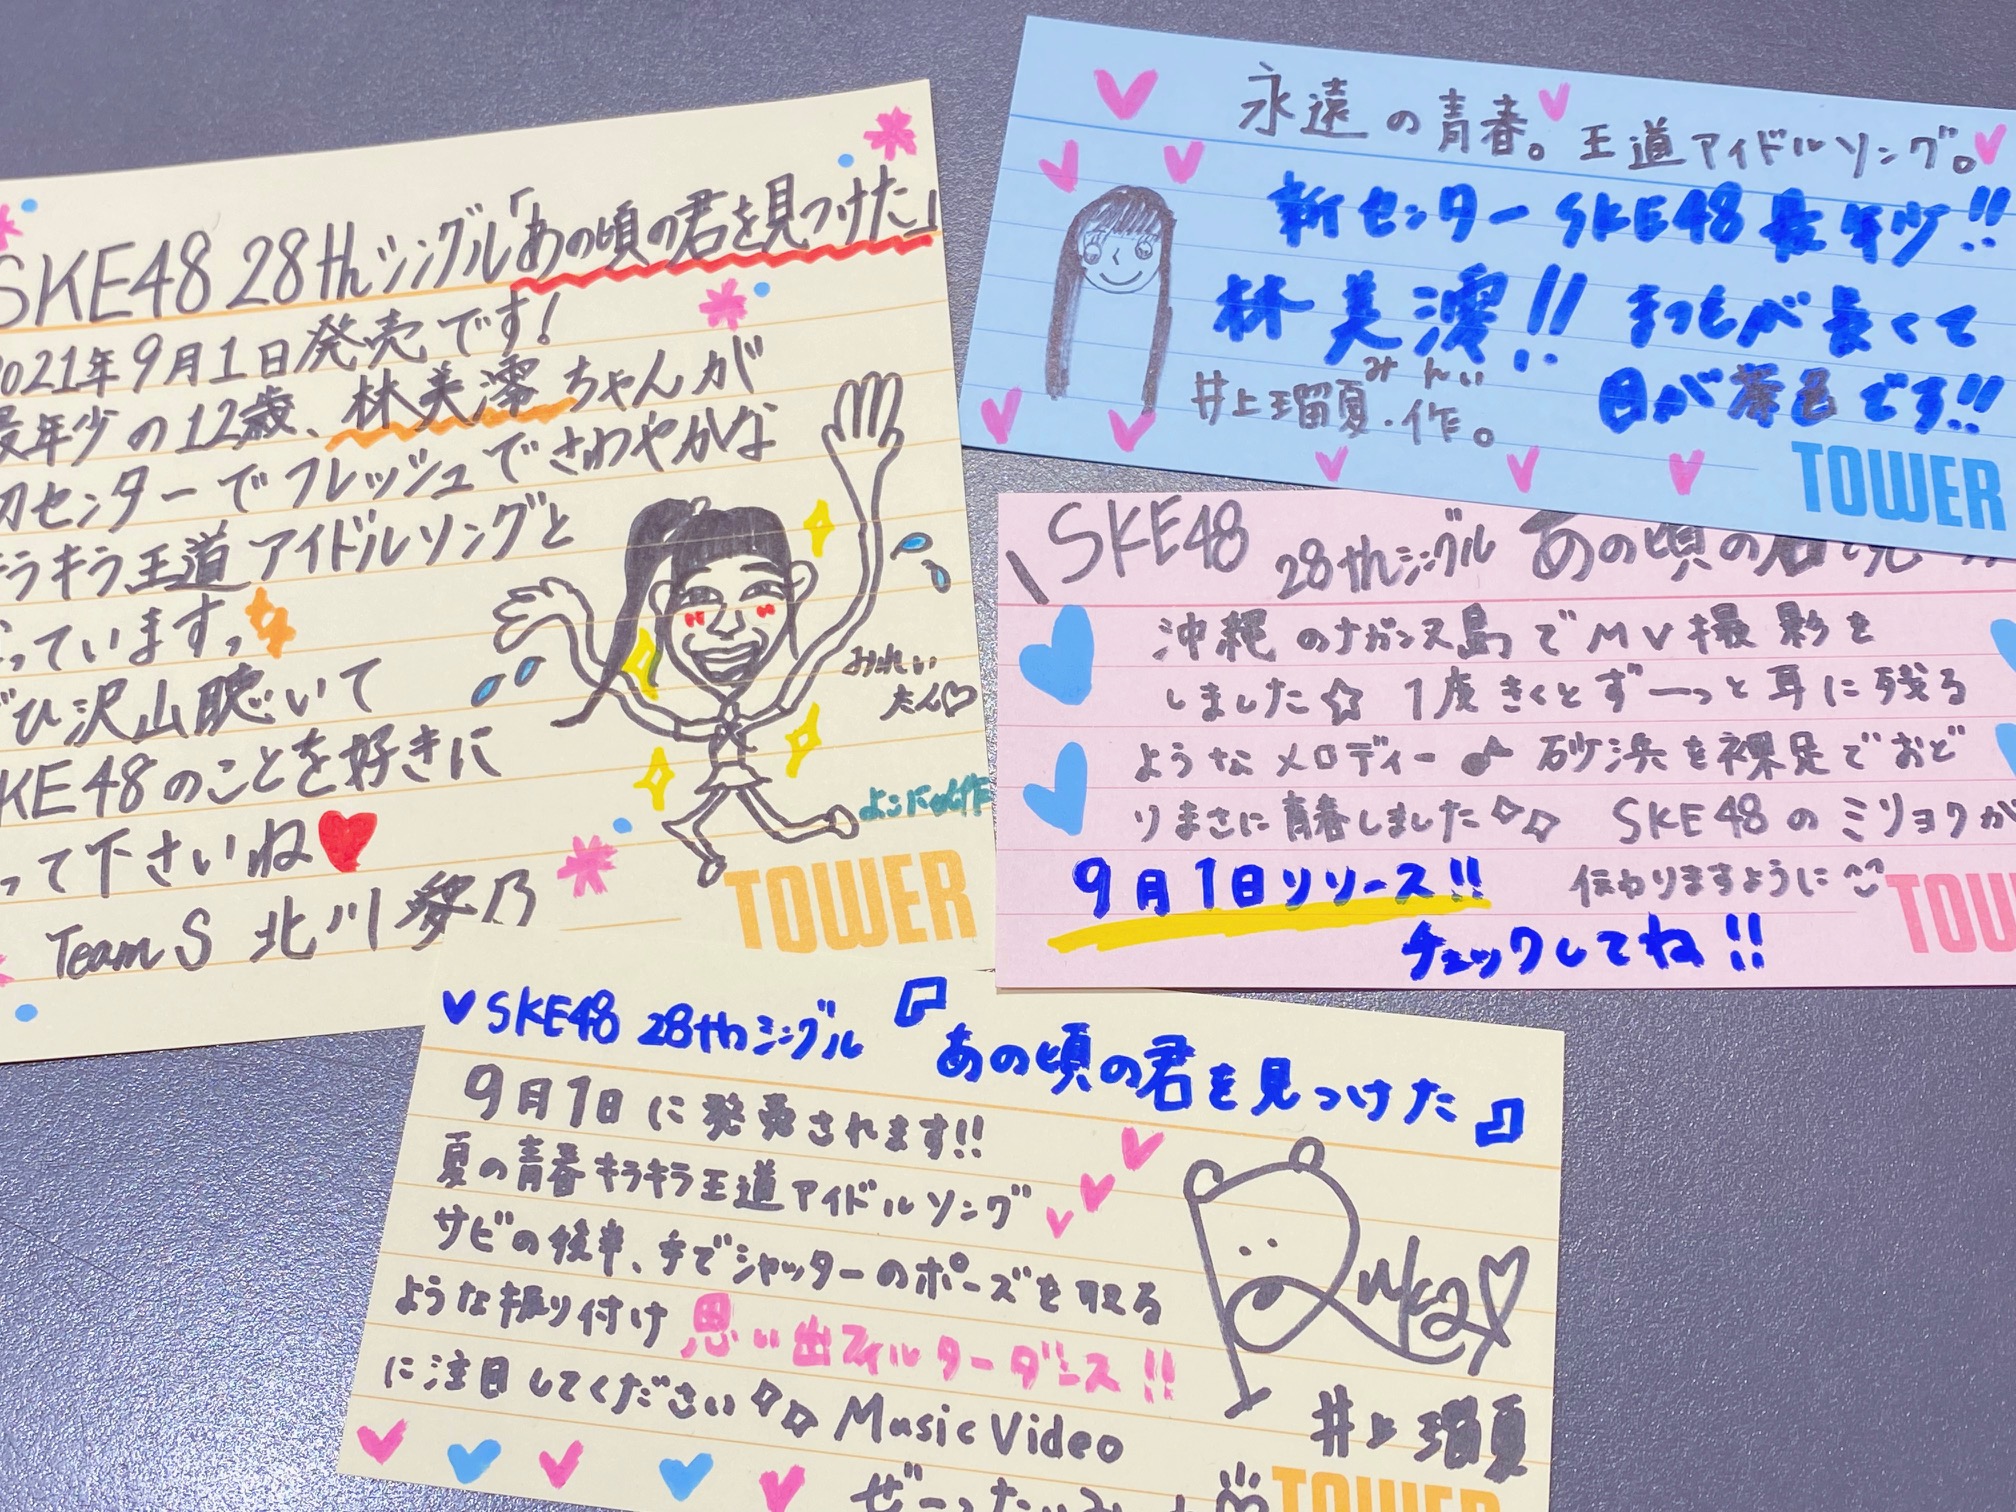 SKE48 28thシングル「あの頃の君を見つけた」
2021年9月1日発売です!
最年少の12歳、林美澪ちゃんが
初センターでフレッシュでさわやかな
キラキラ王道アイドルソングと
っています。
ぜひ沢山聴いて
SKE48のことを好きに
って下さいね
Team S 北川愛乃
おれい
たん♡
よこにゃん作
TOWER
永遠の青春。王道アイドルソング。
新センターSKE48最年少!!
林美澪!! まつもが長くて
目が茶色です!!
みれい
井上瑠夏・作。
TOWER
SKE48 28thシングル あの頃の君を見つ
沖縄のナガンヌ島でMV撮影を
しました☆ 1度きくとず一っと耳に残る
ようなメロディー♪ 砂浜を裸足でおど
りまさに青春しました SKE48のミリョクが
伝わりますように
9月1日リリース!!
チェックしてね!!
TOW
SKE48 28thシングル『あの頃の君を見つけた』
9月1日に発売されます!!
夏の青春キラキラ王道アイドルソング
サビの後半、手でシャッターのポーズを取る
ような振り付け 思い出フィルターダンス!!
に注目してください Music Video
ぜーったい
Ruka♡
井上瑠夏
TOWER